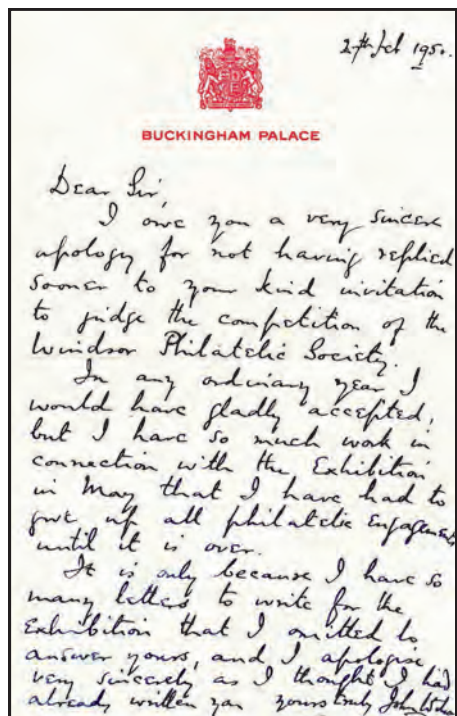 27th Feb 1950.
BUCKINGHAM PALACE
Dear Sir,
I owe you a very sincere
apology for not having replied
sooner to your kind invitation
to judge the competition of the
Windsor Philatelic Society.
In any ordinary year I
would have gladly accepted,
but I have so much work in
connection with the Exhibition
in May that I have had to
give up all philatelic engagements
until it is over.
It is only because I have so
many letters to write for the
Exhibition that I omitted to
answer yours, and I apologise
very sincerely as I thought I had
already written you yours truly John